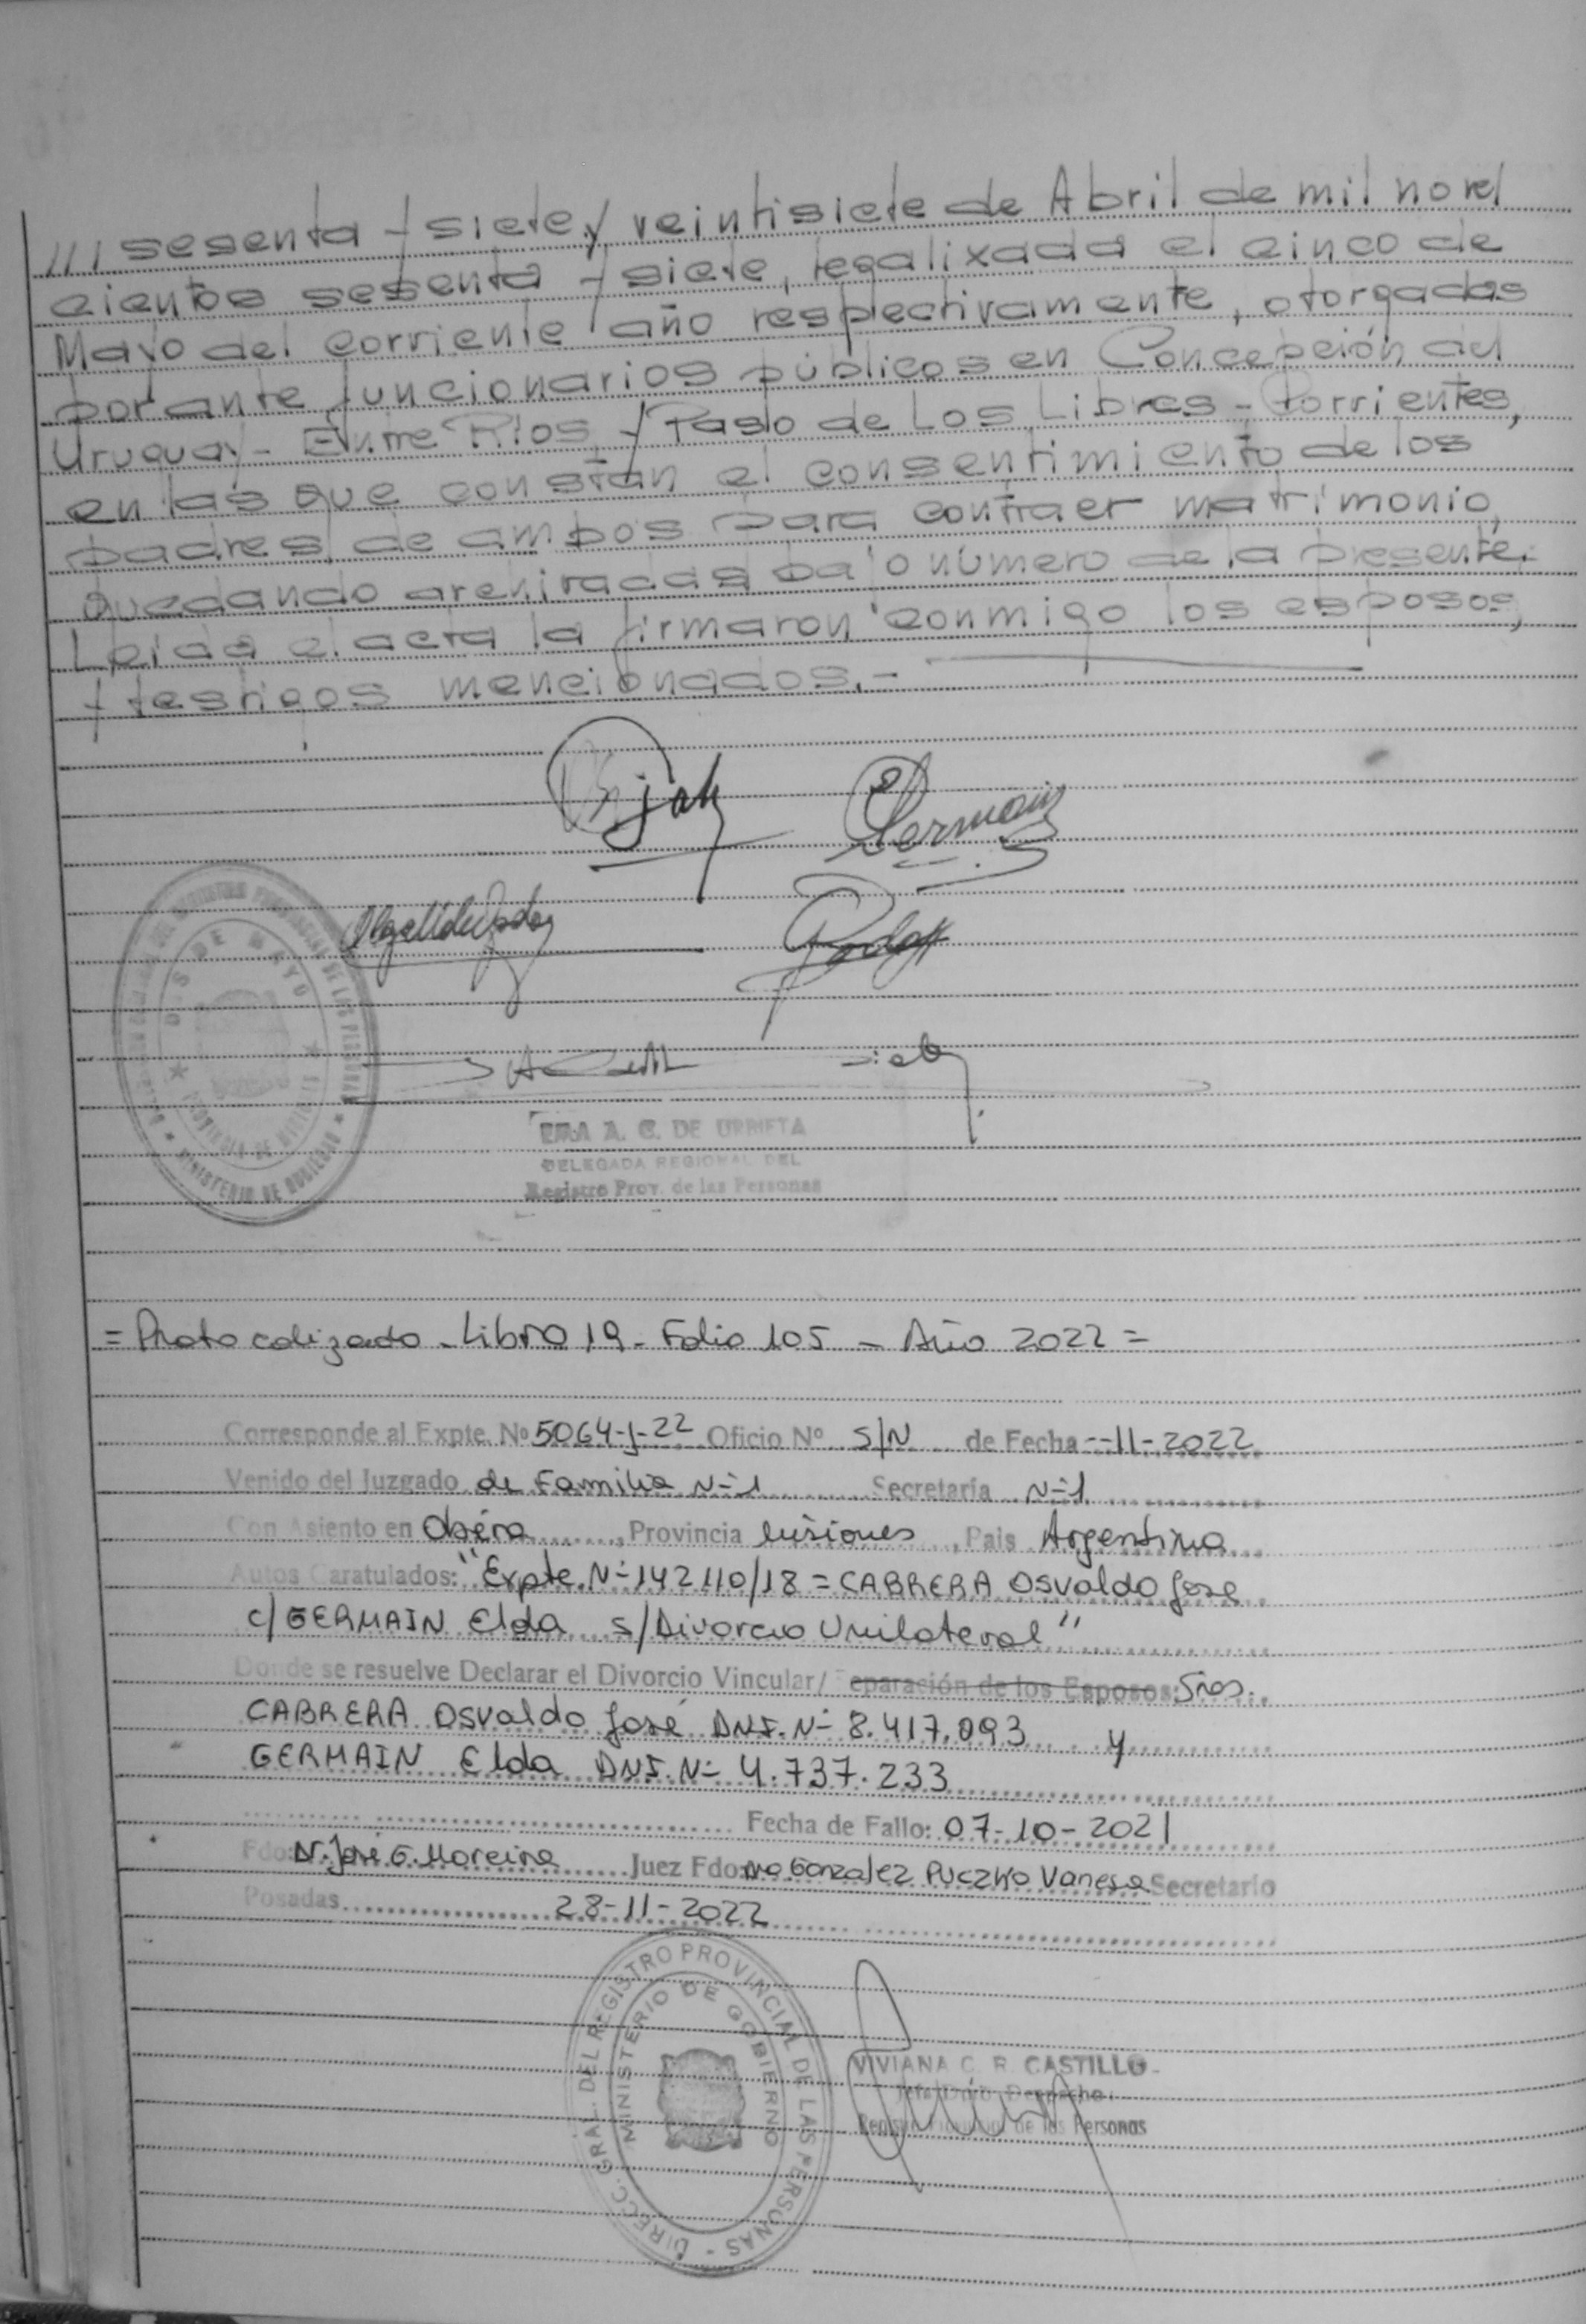 /// sesenta y siete y veintisiete de Abril de mil novel
cientos sesenta y siete, legalizada el cinco de
Mayo del corriente año respectivamente, otorgadas
por ante funcionarios públicos en Concepción del
Uruguay - Entre Ríos y Paso de Los Libres - Corrientes,
en las que constan el consentimiento de los
padres de ambos para contraer matrimonio,
quedando archivadas bajo número de la presente.
Leída el acta la firmaron conmigo los esposos,
y testigos mencionados.-
Germain
DOS DE MAYO
MINISTERIO DE GOBIERNO
A. C. DE URRIETA
DELEGADA REGIONAL DEL
Registro Prov. de las Personas
= Protocolizado - Libro 19 - Folio 105 - Año 2022 =
Corresponde al Expte. Nº 5064-J-22 Oficio Nº S/N de Fecha --11-2022
Venido del Juzgado de Familia Nº1 Secretaría Nº1
Con Asiento en Oberá, Provincia Misiones, País Argentina
Autos Caratulados: "Expte. Nº 142110/18 = CABRERA Osvaldo José
c/ GERMAIN Elda s/ Divorcio Unilateral"
Donde se resuelve Declarar el Divorcio Vincular/ Separación de los Esposos: Sres.
CABRERA Osvaldo José DNI. Nº 8.417.093 y
GERMAIN Elda DNI. Nº 4.737.233
Fecha de Fallo: 07-10-2021
Fdo: Dr. José G. Moreira Juez Fdo: Dra Gonzalez Puczko Vanesa Secretario
Posadas 28-11-2022
DIRECC. GRAL. DEL REGISTRO PROVINCIAL DE LAS PERSONAS -
MINISTERIO DE GOBIERNO
VIVIANA C. R. CASTILLO
Jefe Dpto. Despacho
Registro Provincial de las Personas